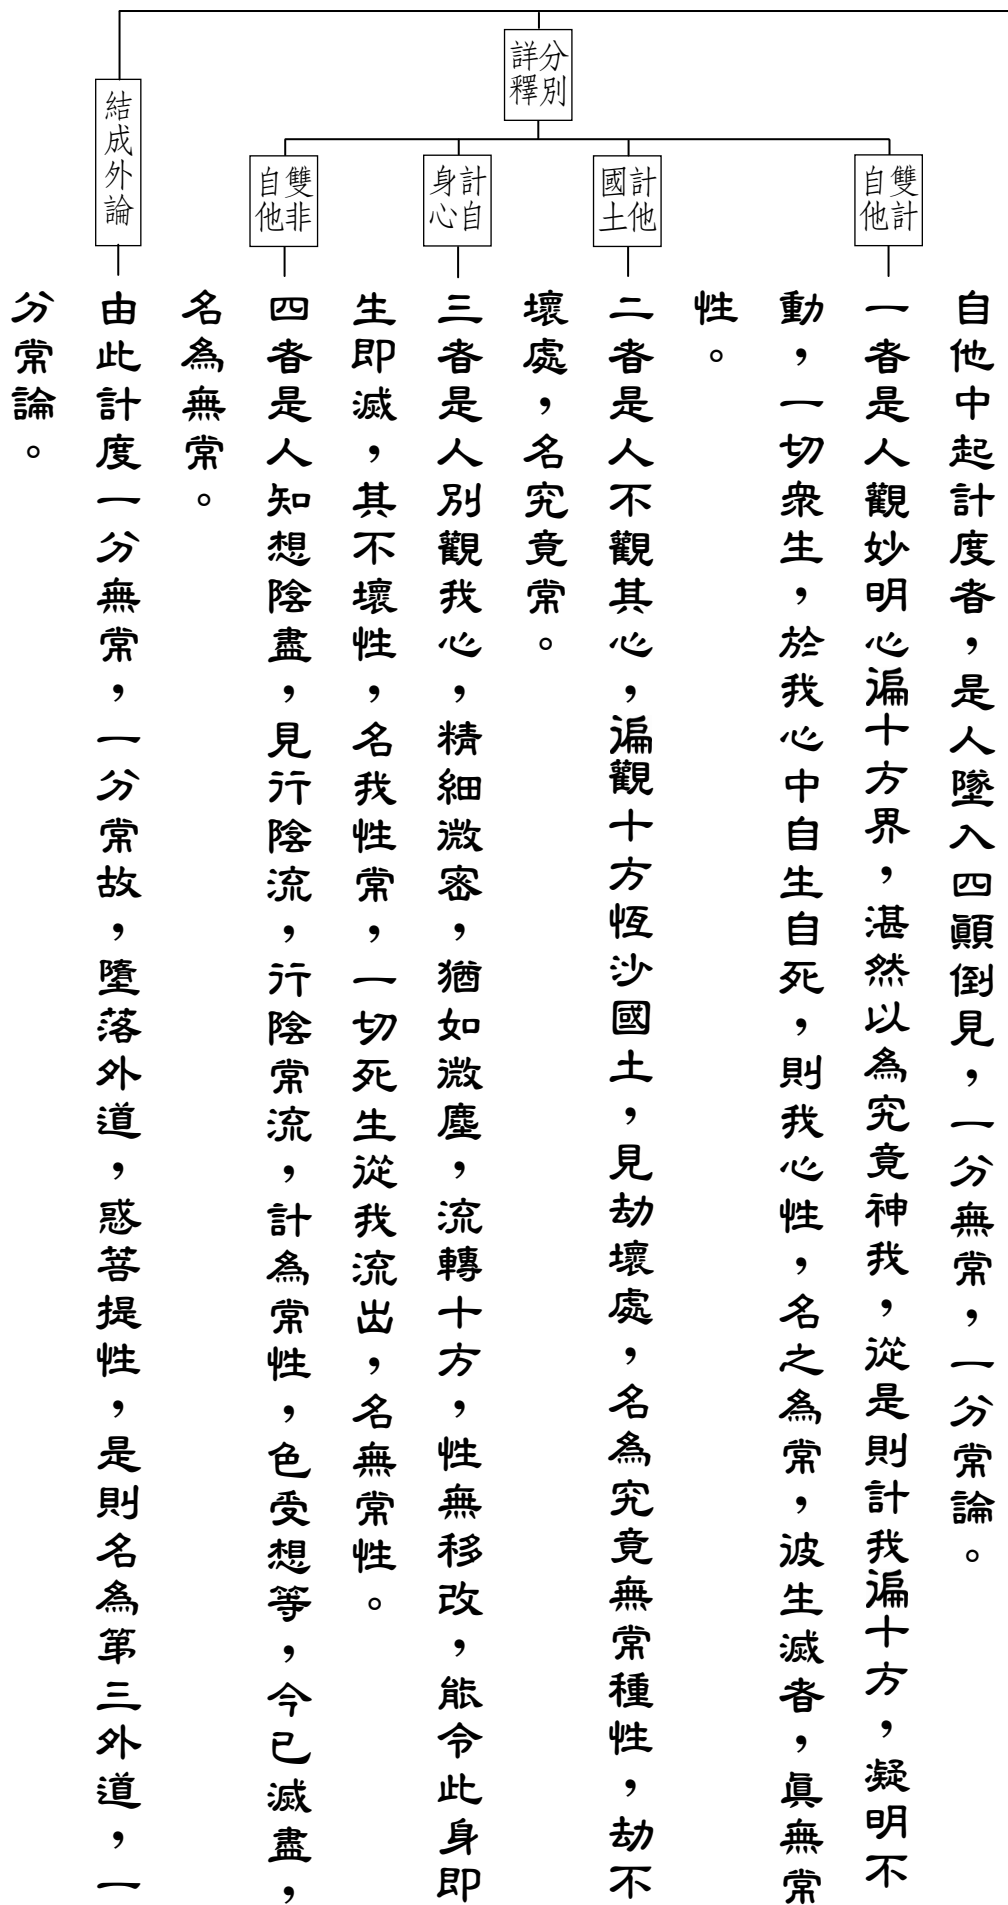 分別
詳釋
雙計
自他
計他
國土
計自
身心
雙非
自他
結成外論
自他中起計度者，是人墜入四顛倒見，一分無常，一分常論。
一者是人觀妙明心遍十方界，湛然以為究竟神我，從是則計我遍十方，凝明不
動，一切眾生，於我心中自生自死，則我心性，名之為常，彼生滅者，真無常
性。
二者是人不觀其心，遍觀十方恆沙國土，見劫壞處，名為究竟無常種性，劫不
壞處，名究竟常。
三者是人別觀我心，精細微密，猶如微塵，流轉十方，性無移改，能令此身即
生即滅，其不壞性，名我性常，一切死生從我流出，名無常性。
四者是人知想陰盡，見行陰流，行陰常流，計為常性，色受想等，今已滅盡，
名為無常。
由此計度一分無常，一分常故，墮落外道，惑菩提性，是則名為第三外道，一
分常論。